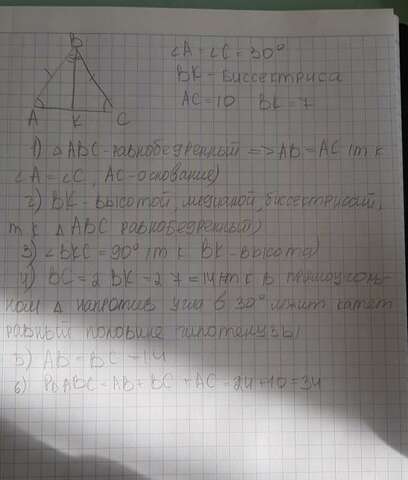 B
A K C
∠A = ∠C = 30°
BK - биссектриса
AC = 10 BK = 7
1) △ABC - равнобедренный => AB = AC (т к
∠A = ∠C, AC - основание)
2) BK - высотой, медианой, биссектрисой,
т к △ ABC равнобедренный)
3) ∠BKC = 90° (т к BK - высота)
4) BC = 2 BK = 2 7 = 14 (т к в прямоуголь-
ном △ напротив угла в 30° лежит катет
равный половине гипотенузы)
5) AB = BC = 14
6) P△ABC = AB + BC + AC = 24 + 10 = 34